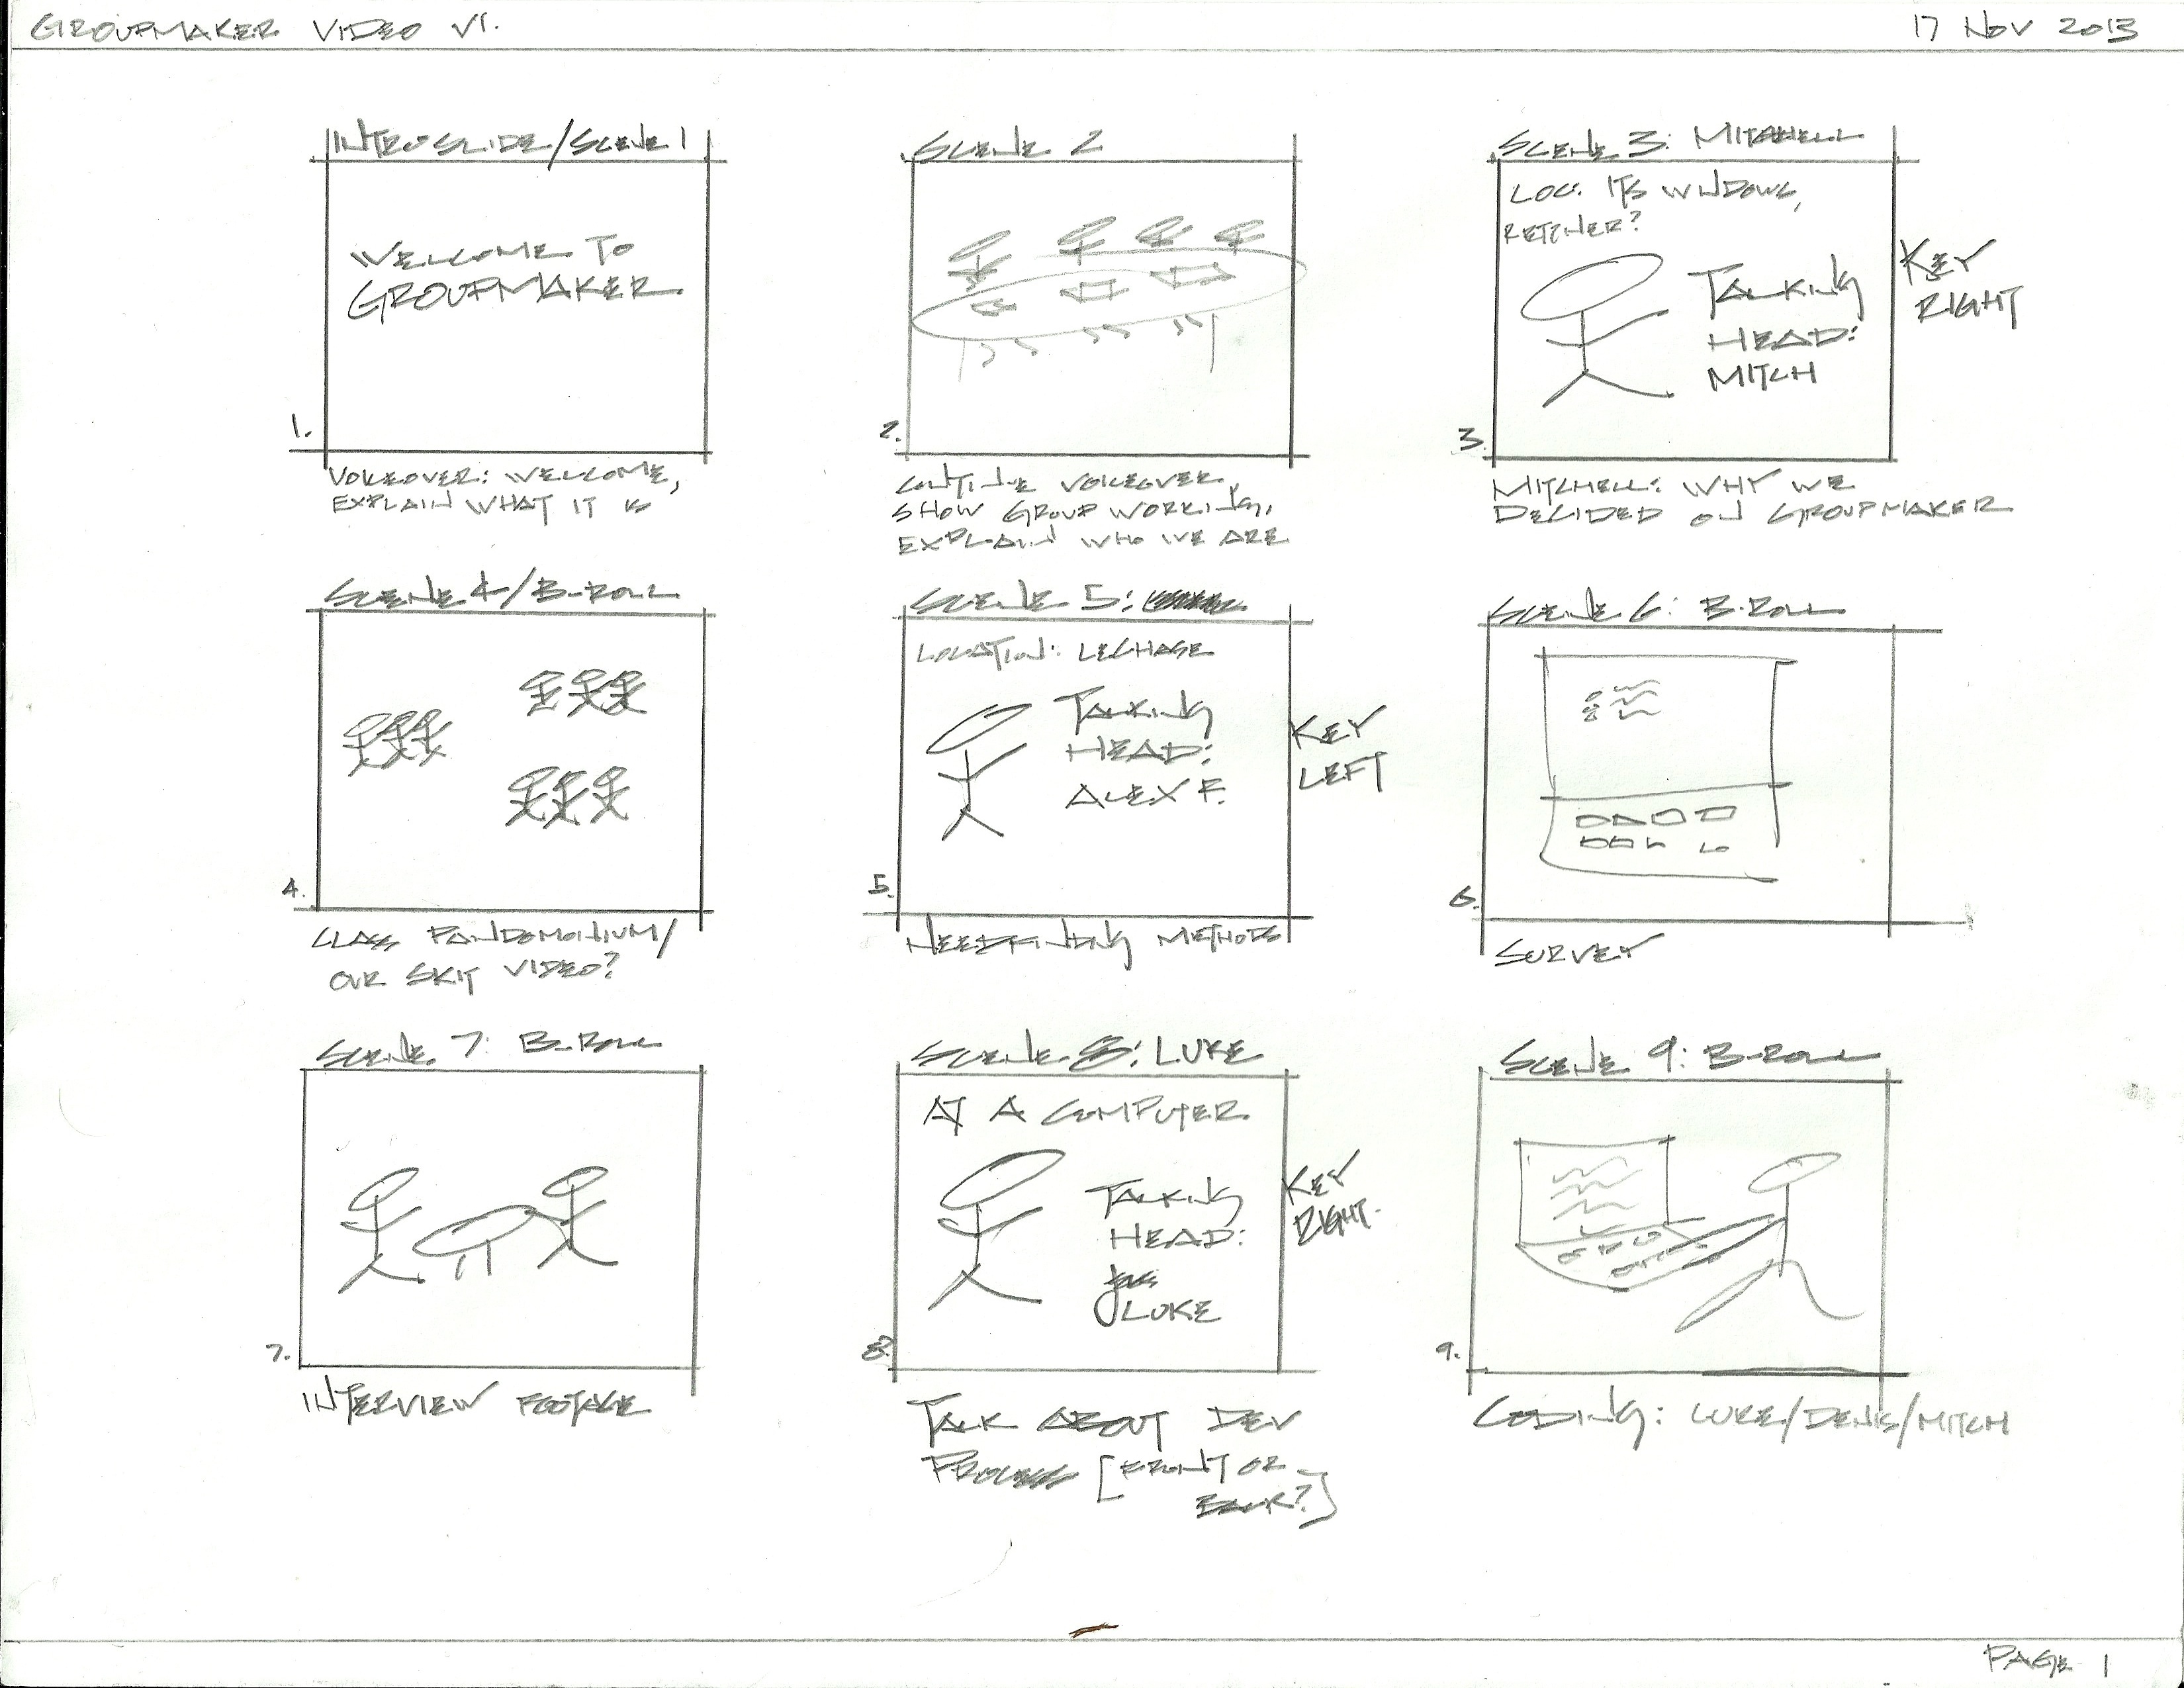 GROUPMAKER VIDEO V1.
17 NOV 2013
INTRO SLIDE/SCENE 1
WELCOME TO
GROUPMAKER.
1.
VOICEOVER: WELCOME,
EXPLAIN WHAT IT IS
SCENE 2
2.
CONTINE VOICEOVER,
SHOW GROUP WORKING,
EXPLAIN WHO WE ARE
SCENE 3: MITCHELL
LOC: ITS WINDOWS,
TALKING
HEAD:
MITCH
KEY
RIGHT
3.
MITCHELL: WHY WE
DECIDED ON GROUPMAKER
SCENE 4/B-ROLL
4.
CLASS PANDEMONIUM/
OUR SKIT VIDEO?
SCENE 5:
LOCATION: LECHASE
TALKING
HEAD:
ALEX F.
KEY
LEFT
5.
NEEDFINDING METHODS
SCENE 6: B-ROLL
6.
SURVEY
SCENE 7: B-ROLL
7.
INTERVIEW FOOTAGE
SCENE 8: LUKE
AT A COMPUTER
TALKING
HEAD:
LUKE
KEY
RIGHT.
8.
TALK ABOUT DEV
PROCESS [FRONT OR
BACK?]
SCENE 9: B-ROLL
9.
CODING: LUKE/DENIS/MITCH
PAGE 1